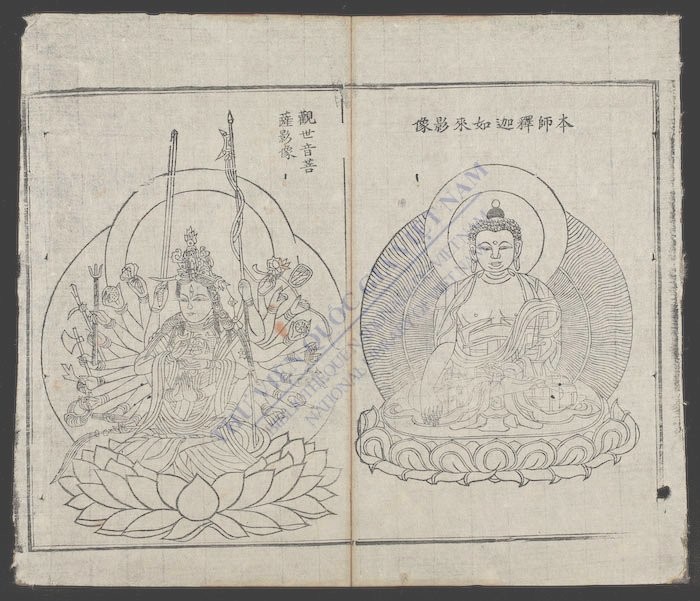 本師釋迦如來影像
觀世音菩
薩影像
THƯ VIỆN QUỐC GIA VIỆT NAM
BIBLIOTHÈQUE NATIONALE DU VIETNAM
NATIONAL LIBRARY OF VIETNAM